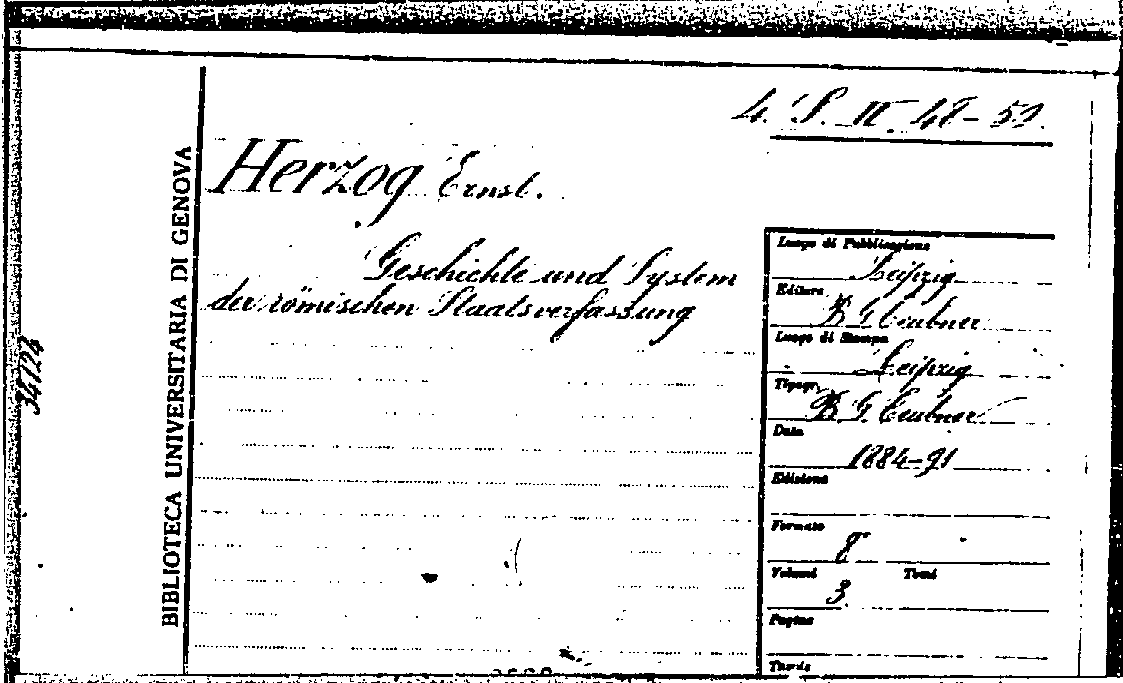 4. S. IV. 48-50.
Herzog Ernst.
Geschichte und System
der römischen Staatsverfassung
BIBLIOTECA UNIVERSITARIA DI GENOVA
34124
Luogo di Pubblicazione
Leipzig
Editore
B. G. Teubner
Luogo di Stampa
Leipzig
Tipogr.
B. G. Teubner
Data
1884-91
Edizione
Formato
8°
Volumi Tomi
3.
Pagine
Tavole